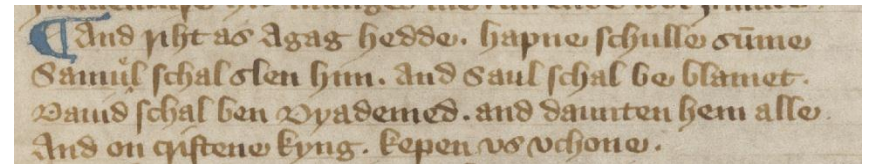 ¶ And riht as Agag hedde. hapne schulle sūme
Samuel schal slen him. And Saul schal be blamet.
Dauid schal ben Dyademed. and daunten hem alle
And on cristene kyng. kepen vs vchone.